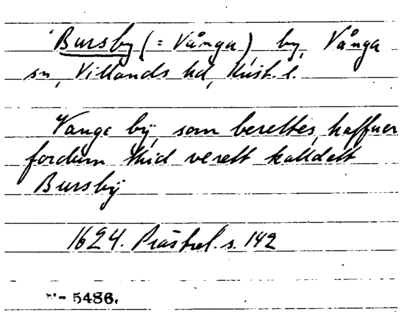 Bursby (= Vånga) by, Vånga
sn, Villands hd, Krist. l.
Vange bÿ som berettes, haffuer
fordum thid verett kalldett
Bursbÿ
1624. Prästrel. s. 142
5486.